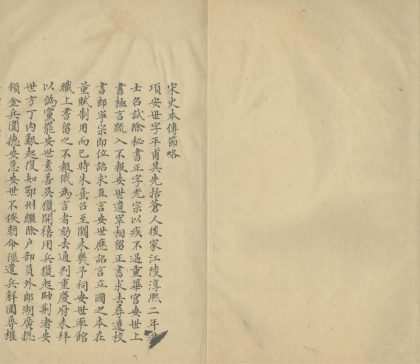 宋史本傳節略
項安世字平甫其先括蒼人後家江陵淳熙二年
士召試除秘書正字光宗以疾不過重華宮安世上
書極言疏入不報安世遺宰相留正書求去尋遷校
書郎寧宗即位詔求直言安世應詔言立國之本在
量賦制用而已時朱熹召至闕未幾予祠安世率館
職上書留之不報俄為言者劾去通判重慶府未拜
以偽黨罷安世素善吳獵開禧用兵獵起帥荊渚安
世方丁內艱起復知鄂州繼除户部員外郎湖廣總
領金兵圍德安急安世不俟朝命徑遣兵解圍尋權